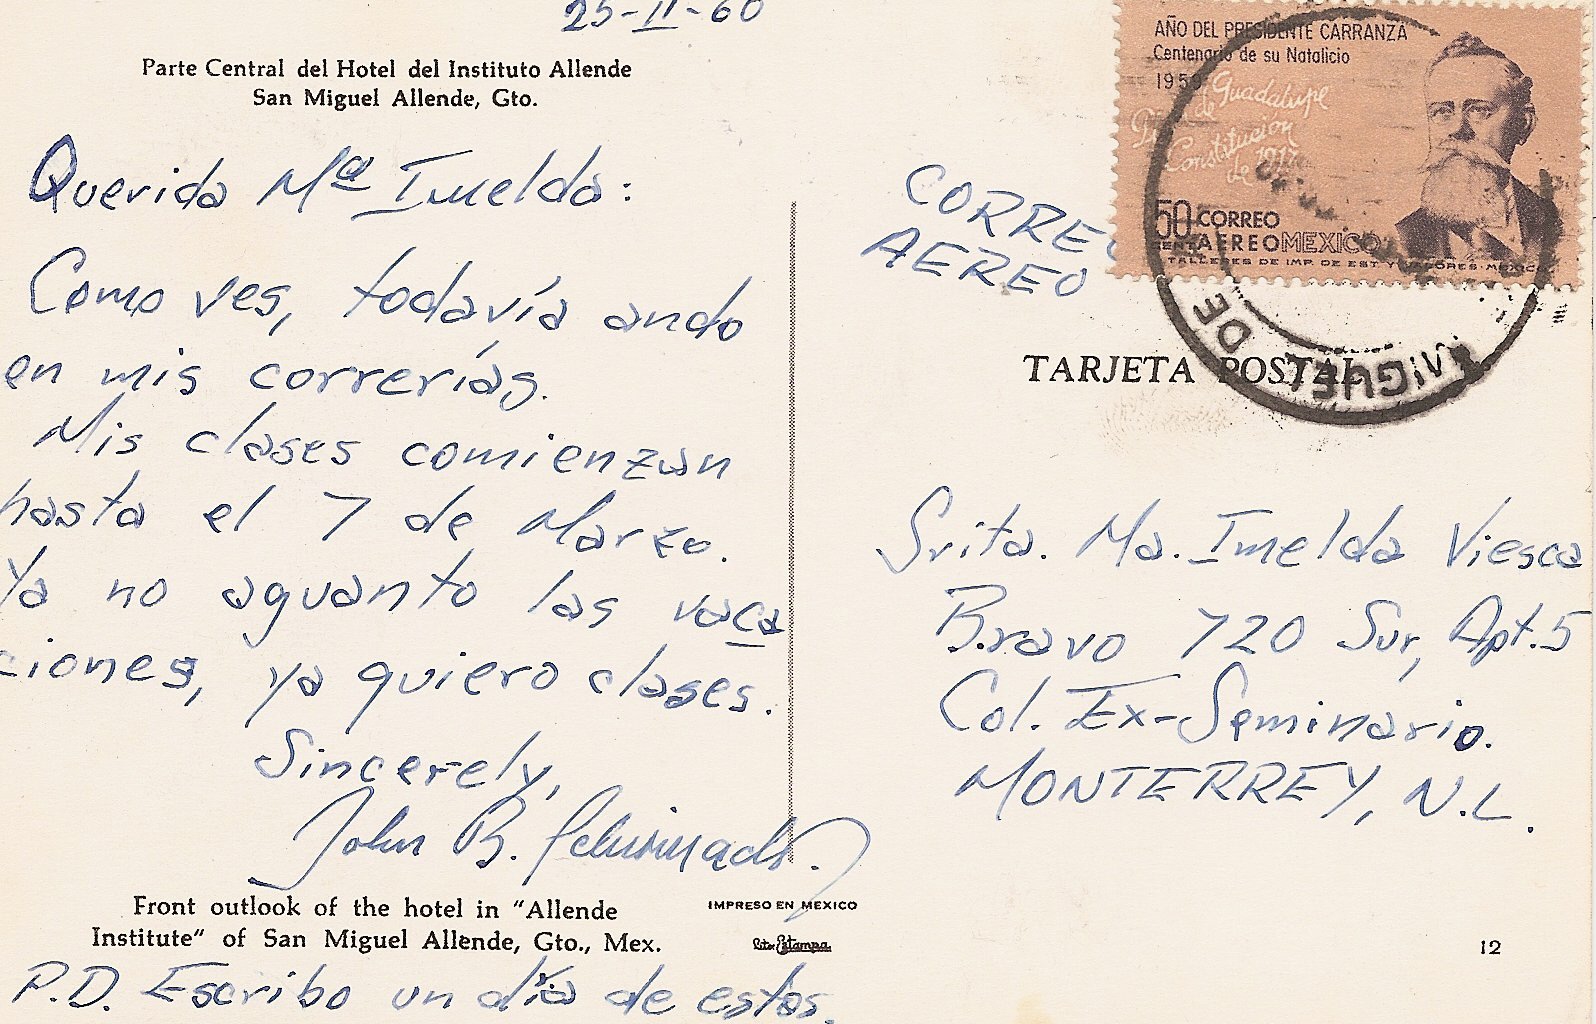 25-II-60
Parte Central del Hotel del Instituto Allende
San Miguel Allende, Gto.
Querida Mª Imelda:
Como ves, todavía ando
en mis correrías.
Mis clases comienzan
hasta el 7 de Marzo.
Ya no aguanto las vaca
ciones, ya quiero clases.
Sincerely,
John B.
Front outlook of the hotel in "Allende
Institute" of San Miguel Allende, Gto., Mex.
P.D. Escribo un día de estos.
IMPRESO EN MEXICO
Lito Estampa
AÑO DEL PRESIDENTE CARRANZA
Centenario de su Natalicio
1959
Plan de Guadalupe
Constitucion
de 1917
50 CORREO
CENTS AEREO MEXICO
TALLERES DE IMP. DE EST. Y VALORES-MEXICO
CORREO
AEREO
DE
MIGUEL
TARJETA POSTAL
Srita. Ma. Imelda Viesca
Bravo 720 Sur, Apt. 5
Col. Ex-Seminario.
MONTERREY, N.L.
12